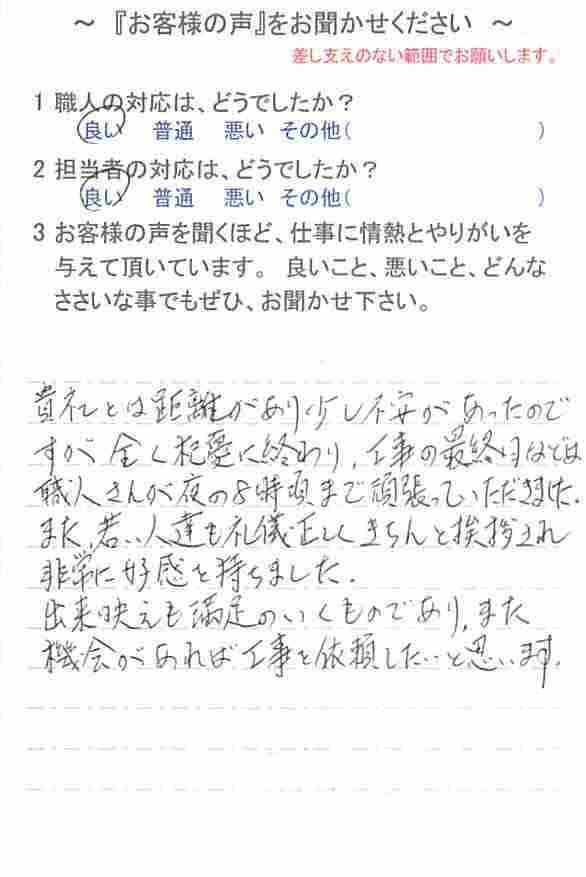 ～ 『お客様の声』をお聞かせください ～
差し支えのない範囲でお願いします。
1 職人の対応は、どうでしたか？
良い 普通 悪い その他( )
2 担当者の対応は、どうでしたか？
良い 普通 悪い その他( )
3 お客様の声を聞くほど、仕事に情熱とやりがいを
与えて頂いています。 良いこと、悪いこと、どんな
ささいな事でもぜひ、お聞かせ下さい。
貴社とは距離があり少し不安があったので
すが全く杞憂に終わり、工事の最終日などは
職人さんが夜の8時頃まで頑張っていただきました。
また、若い人達も礼儀正しくきちんと挨拶され
非常に好感を持ちました。
出来映えも満足のいくものであり、また
機会があれば工事を依頼したいと思います。